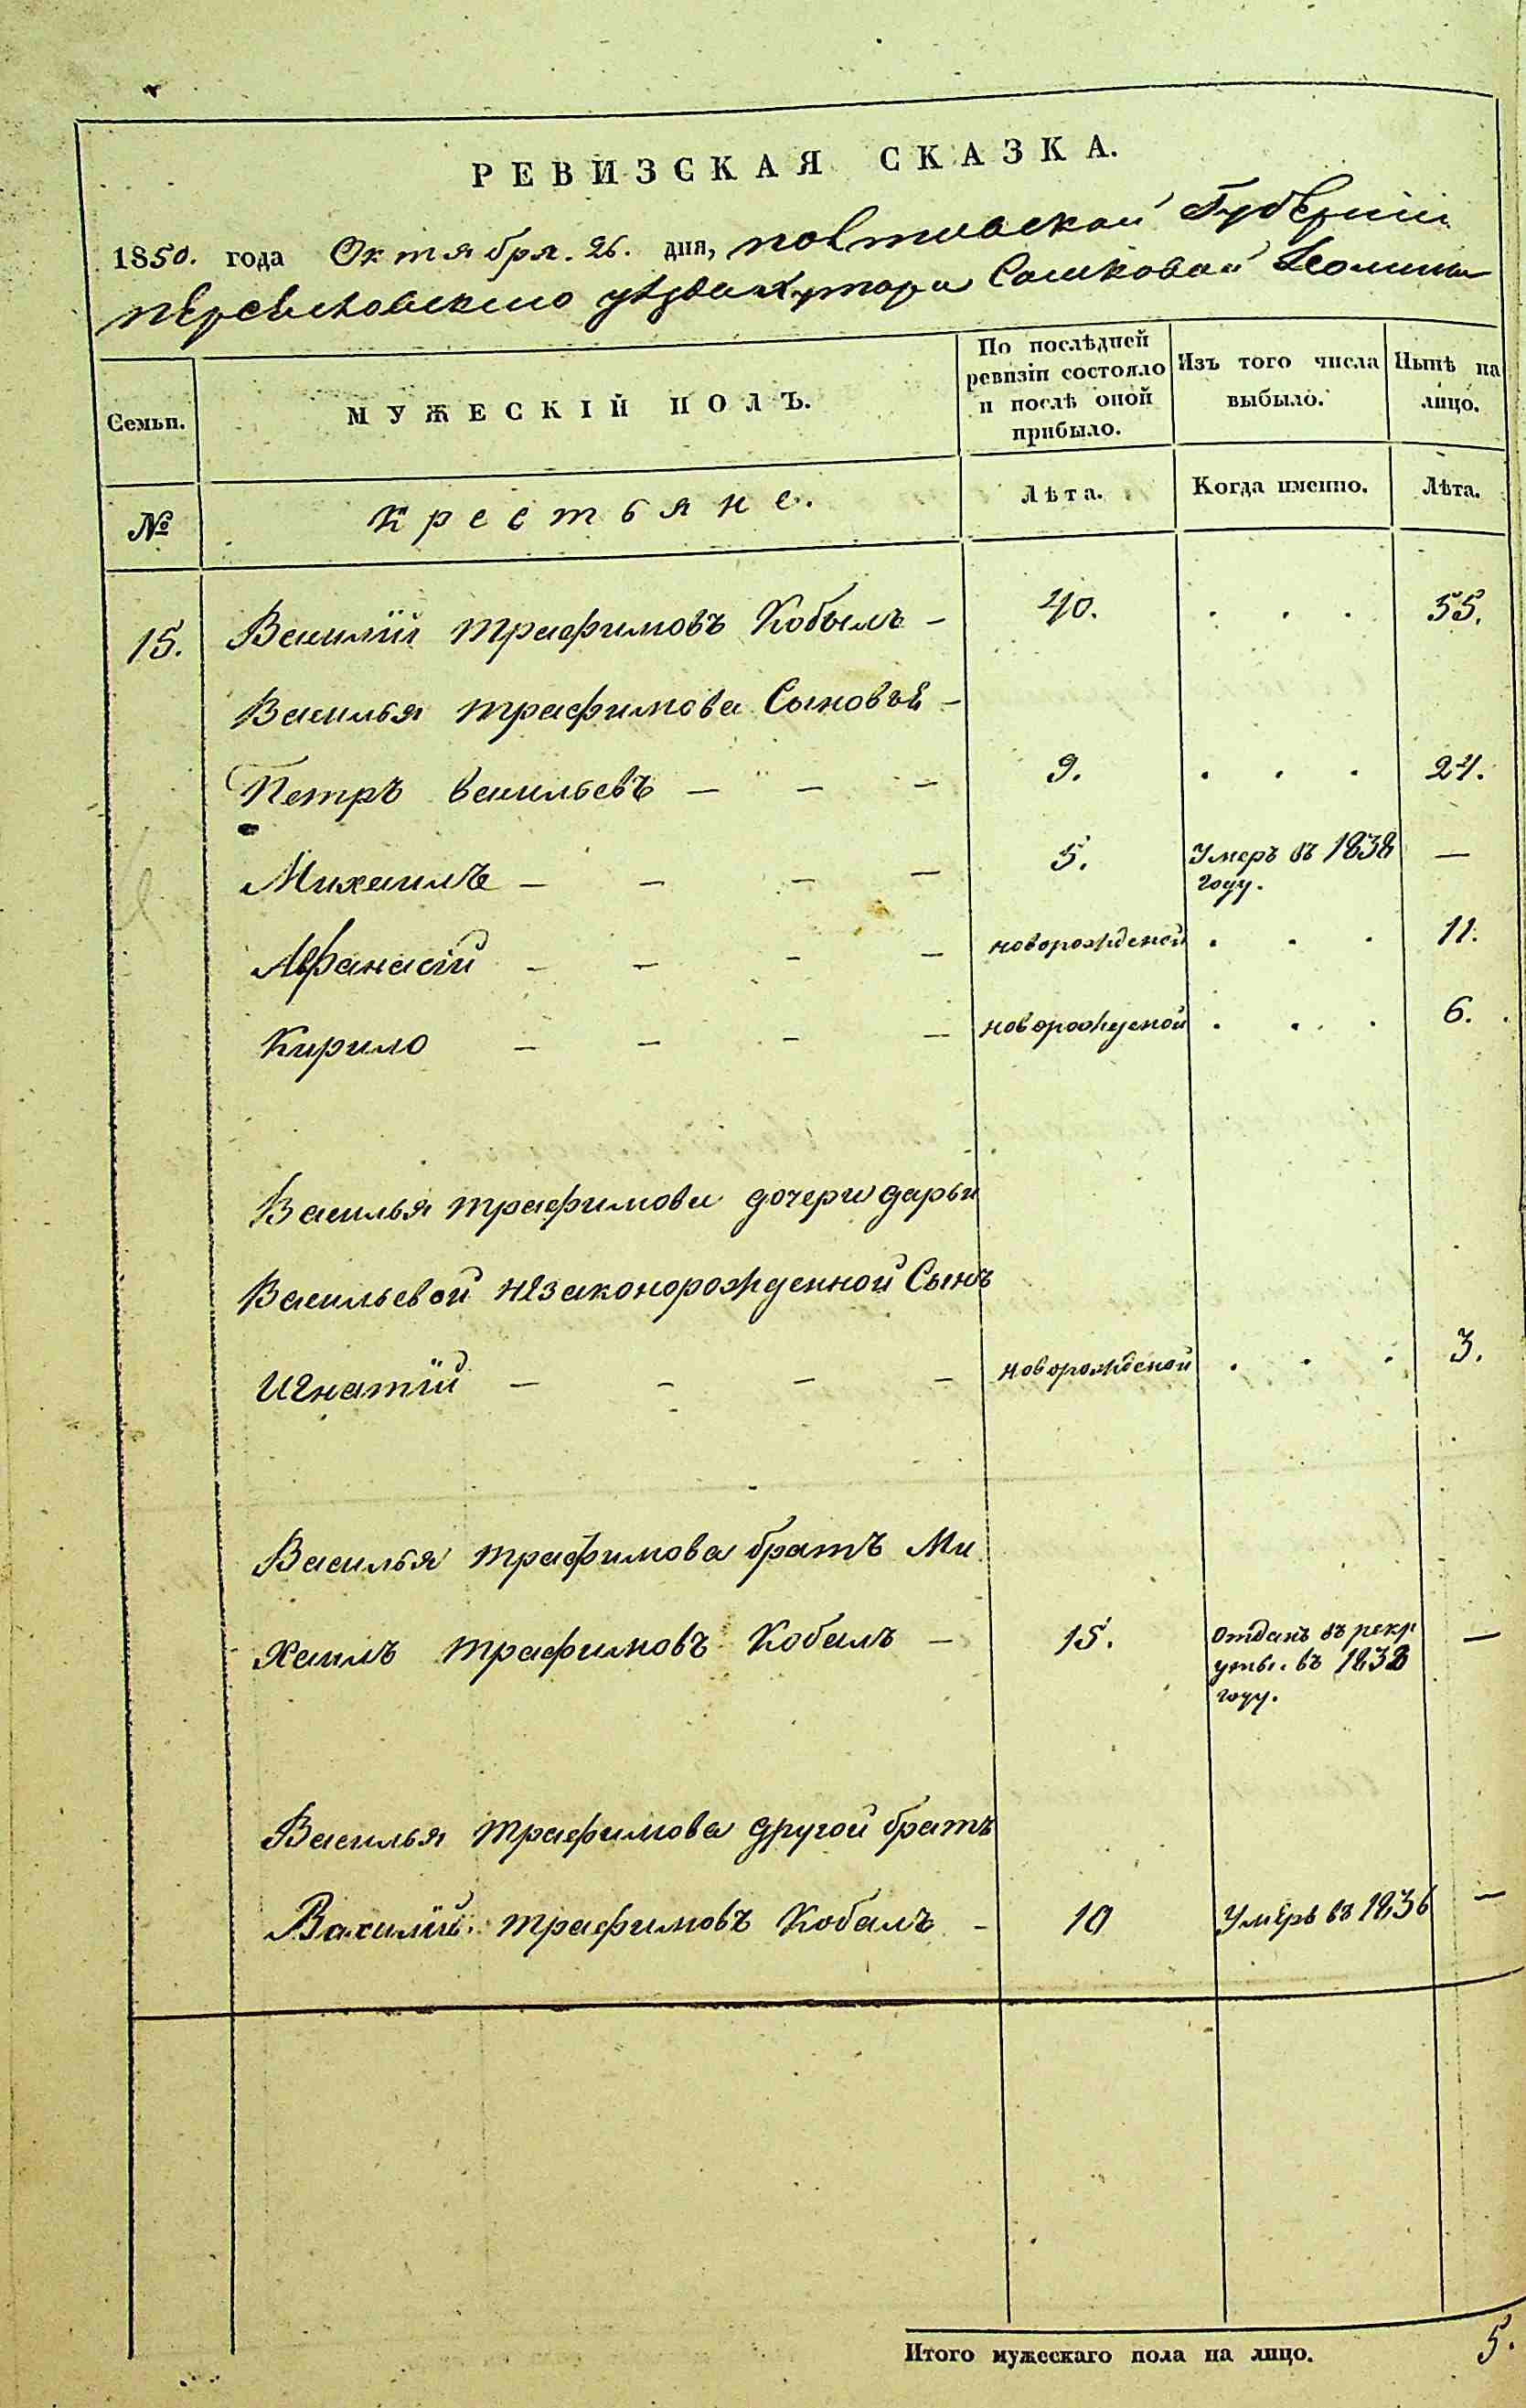 РЕВИЗСКАЯ СКАЗКА.
1850. года Октября. 26. дня, полтавской Губерніи
переяславскаго уѣзда Хутора Сошковой Долины
Семьи. МУЖЕСКІЙ ПОЛЪ. По послѣдней ревизіи состояло и послѣ оной прибыло. Изъ того числа выбыло. Нынѣ на лицо.
№ Крестьяне. Лѣта. Когда именно. Лѣта.
15. Василій трафимовъ Кобылъ — 40. . . . 55.
Василья трафимова Сыновъя —
Петръ васильевъ — — — 9. . . . 24.
Михаилъ — — — — 5. Умеръ въ 1838 году. —
Афанасій — — — — новорожденой . . . 11.
Кирило — — — — новорожденой . . . 6.
Василья трафимова дочери дарьи
Васильевой незаконорожденной Сынъ
Игнатій — — — — новорожденой . . . 3.
Василья трафимова братъ Ми
хаилъ трафимовъ Кобалъ — 15. Отданъ въ рекруты. въ 1838 году. —
Василья трафимова другой братъ
Василій трафимовъ Кобалъ — 10 Умеръ въ 1836 —
Итого мужескаго пола на лицо. 5.